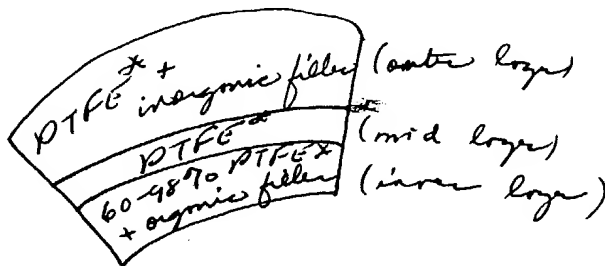 PTFE* +
inorganic filler (outer layer)
PTFE* (mid layer)
60-98% PTFE*
+ organic filler (inner layer)